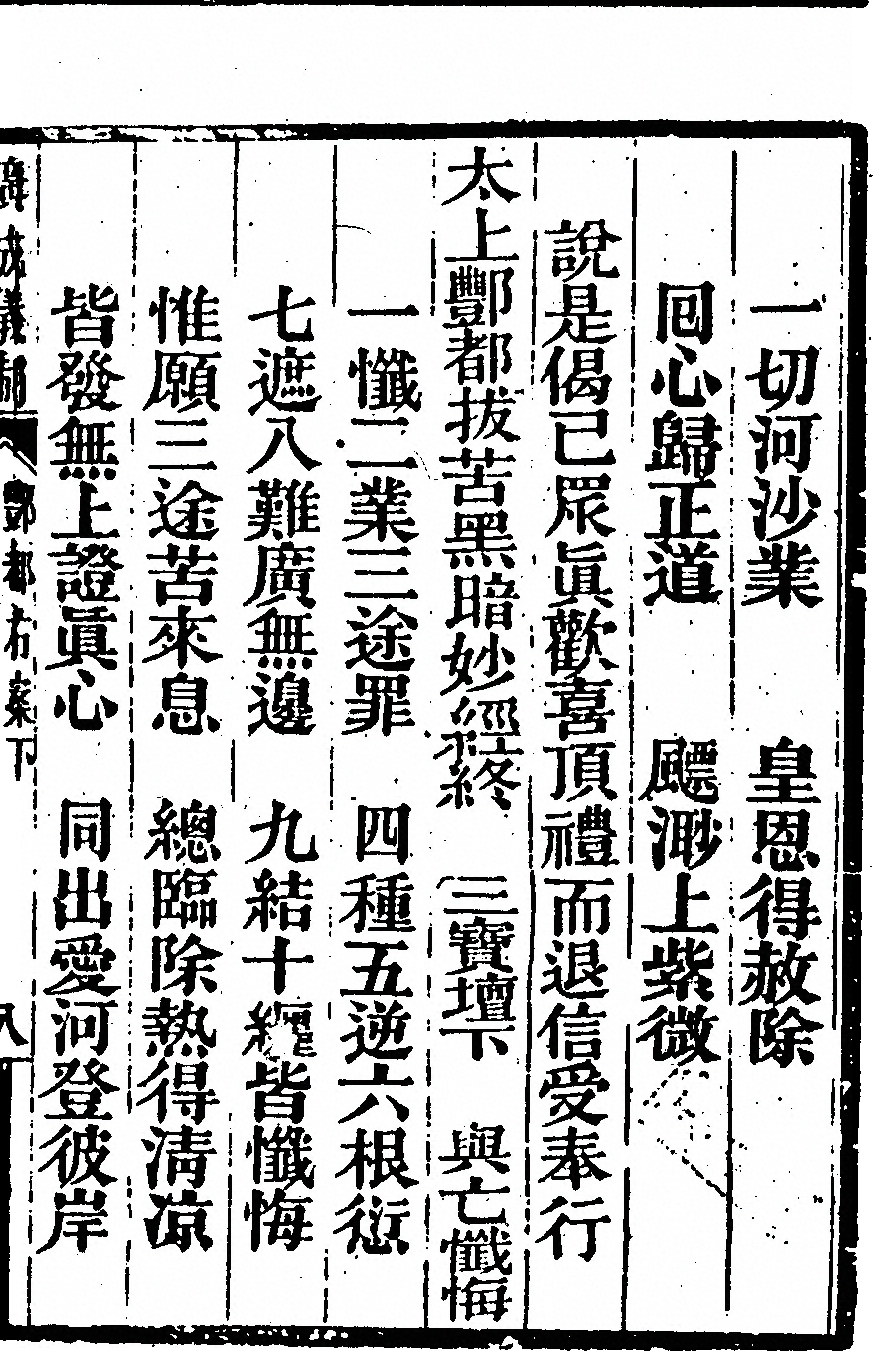 一切河沙業　皇恩得赦除
囘心歸正道　飃渺上紫微
說是偈已眾眞歡喜頂禮而退信受奉行
太上酆都拔苦黑暗妙經終　三寶壇下　與亡懺悔
一懺二業三途罪　四種五逆六根愆
七遮八難廣無邊　九結十纏皆懺悔
惟願三途苦來息　總臨除熱得清凉
皆發無上證眞心　同出愛河登彼岸
成儀制　酆都右案下　八